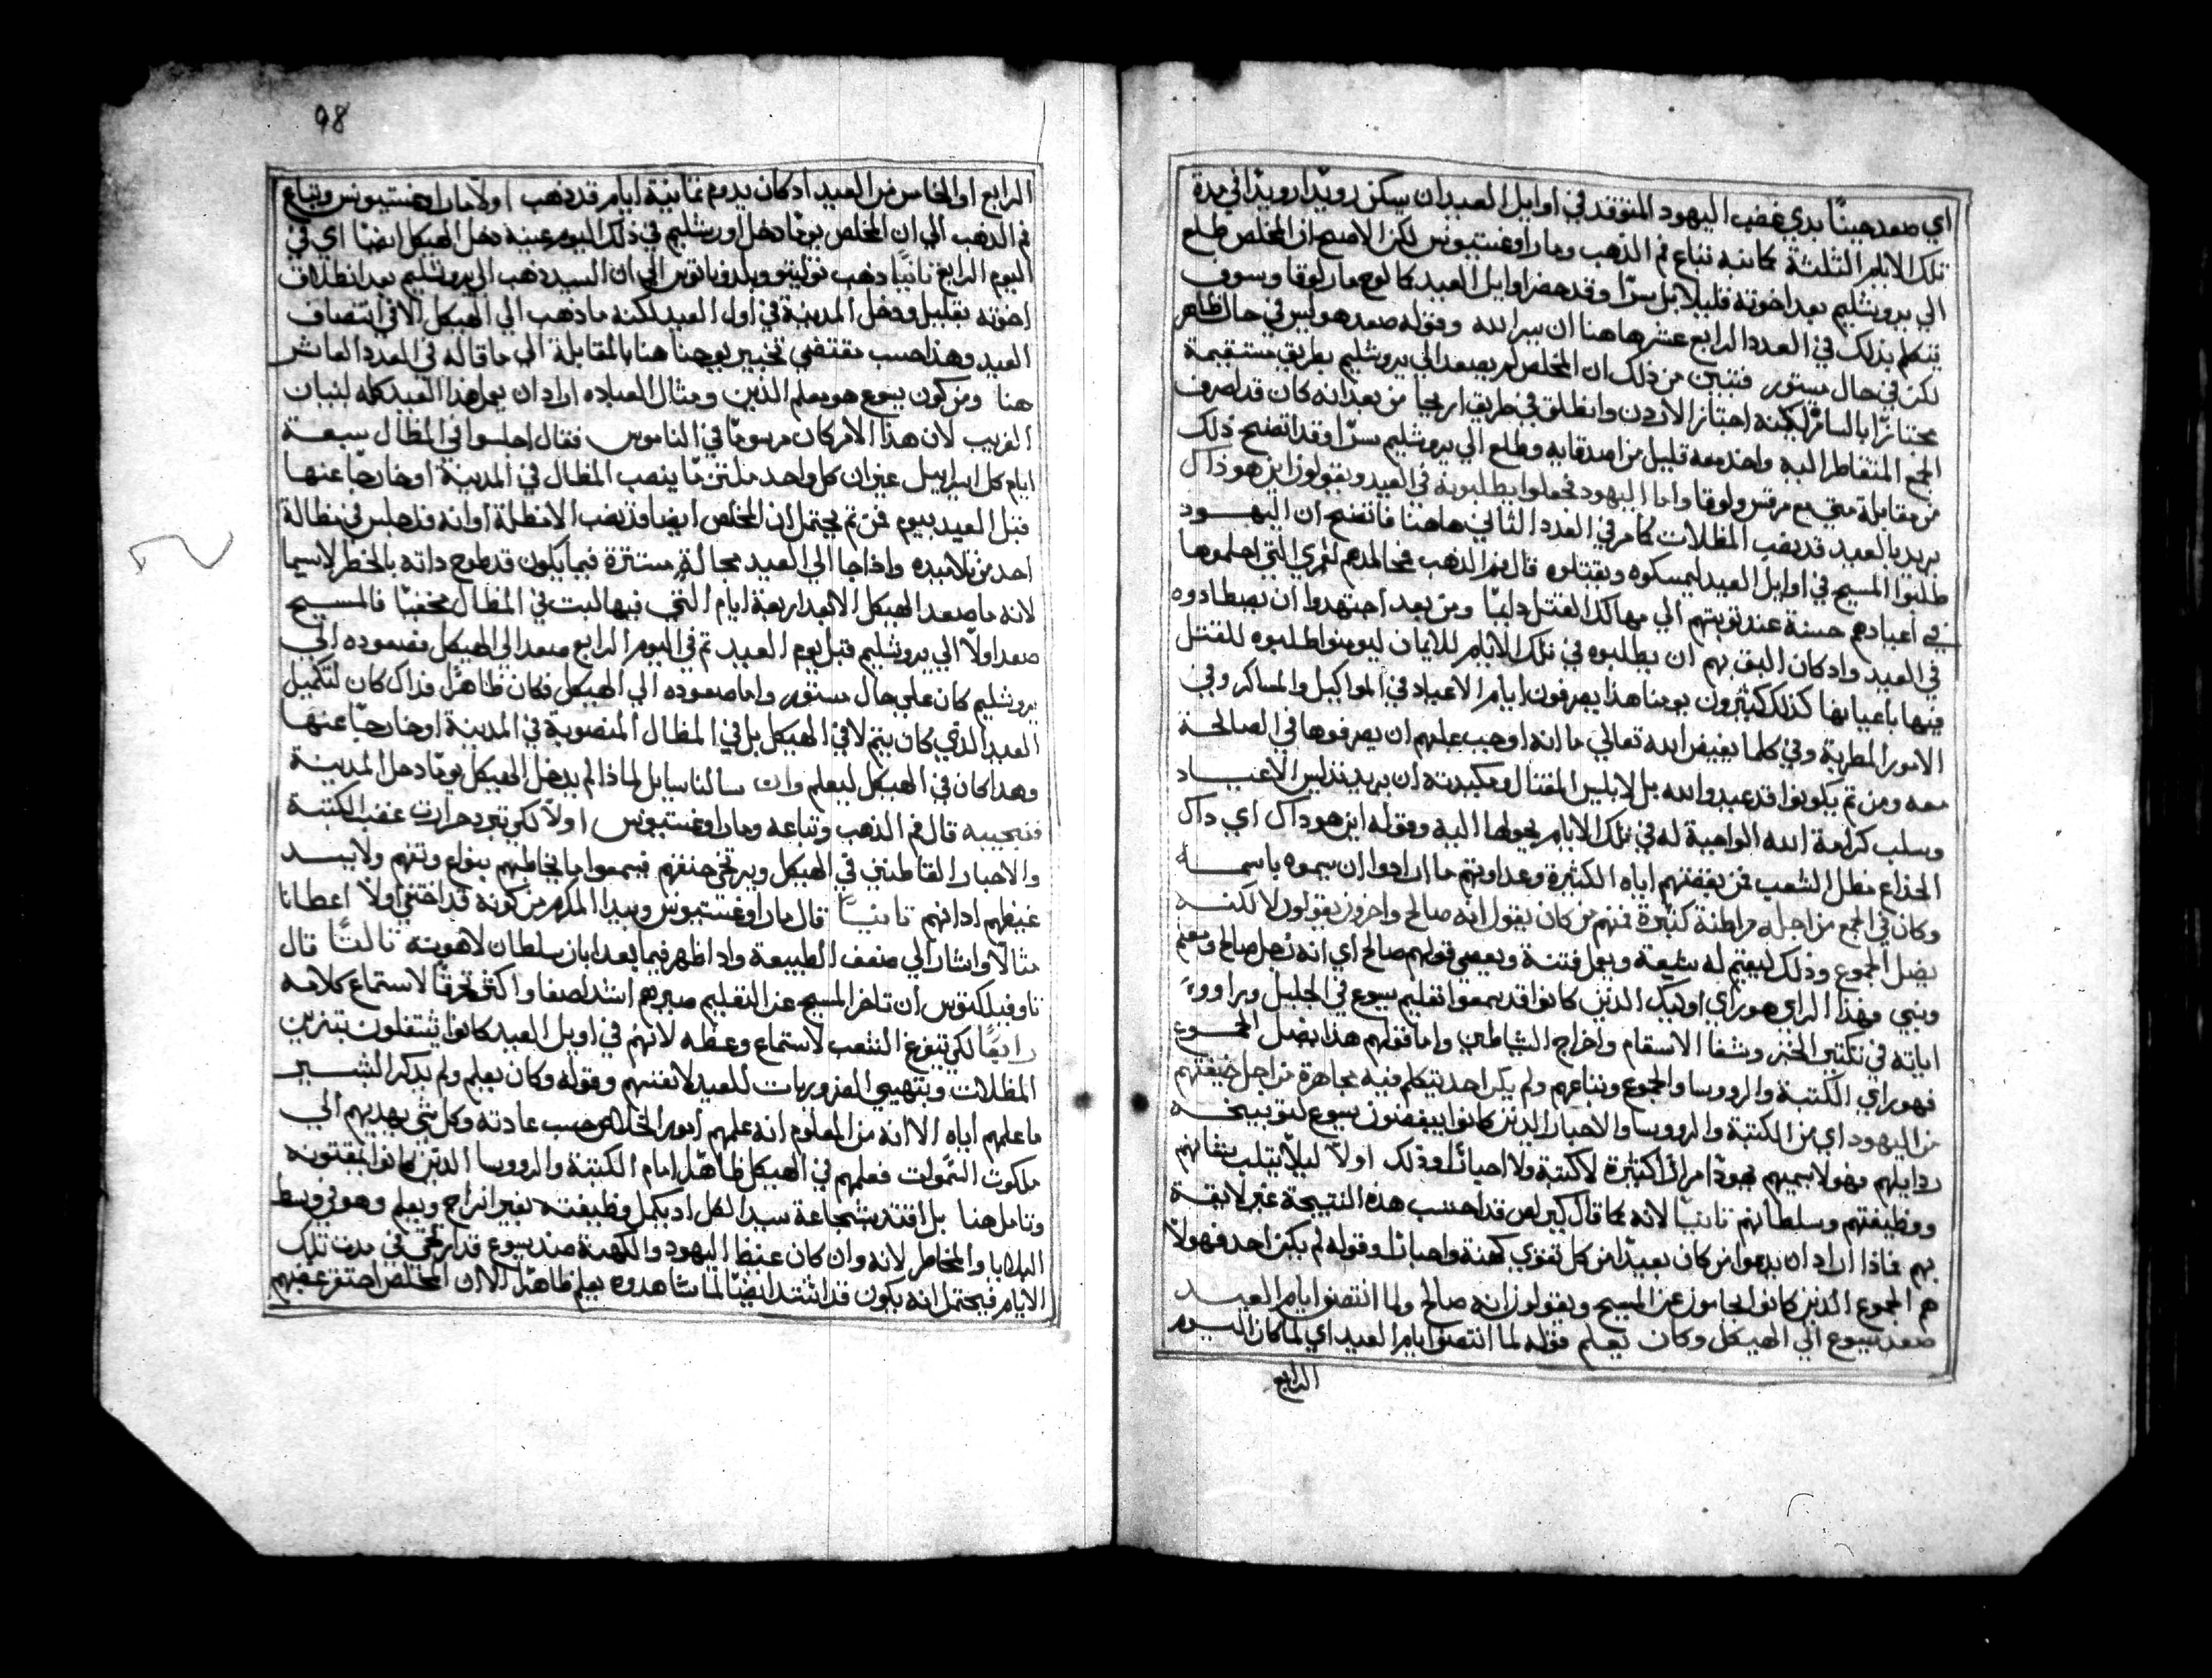 اي صعد حينًا بدي غضب اليهود المتوقد في اوايل العيد ان يسكن رويدًا رويدًا في مدة
تلك الايام الثلثة كما تنبه تتباع فم الذهب ومار اوغستينوس لكن الاصح ان المخلص طلع
الي يروشليم بعد اخوته قليلا بل سرًا وقد حضر اوايل العيد كما لوح مار لوقا وسوف
يتكلم بذلك في العدد الرابع عشر هاهنا ان يسر الله وقوله صعد هو ليس في حال ظاهر
لكن في حال مستور فتبين من ذلك ان المخلص لم يصعد الي يروشليم بطريق مستقيمة
مجتازًا بالسامرة لكنه اجتاز الاردن وانطلق في طريق اريحا من بعد انه كان قد صرف
الجمع المتقاطر اليه واخذ معه قليل من اصدقايه وطلع الي يروشليم سرًا وقد اتضح ذلك
من مقابلة متي مع مرقس ولوقا واما اليهود فجعلوا يطلبونه في العيد ويقولون اين هو ذاك
يريد بالعيد قد نصب المظلات كما مر في العدد الثاني هاهنا فاتضح ان اليهود
طلبوا المسيح في اوايل العيد ليمسكوه ويقتلوه قال فم الذهب
في اعيادهم حسنة عند توبتهم الي مهالك القتل دايمًا ومن بعد اجتهدوا ان يصطادوه
في العيد واد كان اليق بهم ان يطلبوه في تلك الايام للايمان ليومنوا طلبوه للقتل
فيها باعيانها كذلك كثيرون يومنا هذا يصرفون ايام الاعياد في المواكيل والمساكر وفي
الامور المطربة وفي كلما يغيض الله تعالي ما انه اوجب عليهم ان يصرفوها في الصالحة
معه ومن تم يكونوا قد عيدوا لله بل لابليس المقتال ومكيدته ان يريد تدليس الاعياد
وسلب كرامة الله الواجبة له في تلك الايام يحولها اليه وقوله اين هو ذاك اي ذاك
الخداع مضل الشعب فمن بغضتهم اياه الكثيرة وعداوتهم ما ارادوا ان يسموه باسمه
وكان في الجمع من اجله مراطنة كثيرة فمنهم من كان يقول انه صالح واخرون يقولون لا لكنه
يضل الجموع وذلك ليقيم له شيعة ويعمل فتنة ويعصي قولهم صالح اي انه رجل صالح ومعلم
ونبي فهذا الراي هو راي اوليك الذين كانوا قد سمعوا تعليم يسوع في الجليل وراووا
اياته في تكثير الخبز وشفا الاسقام واخراج الشياطين واما قولهم هذا يضل الجموع
فهو راي الكتبة والروسا والجموع وتباعهم ولم يكن احد يتكلم فيه مجاهرة من اجل خيفتهم
من اليهود اي من الكتبة والروسا والاحبار الذين كانوا يبغضون يسوع لتوبيخه
ردايلهم فهو لا يسميهم يهودًا مرارًا كثيرة لا كتبة ولا احبارًا وذلك اولًا ليلا يثلب مقامهم
ووظيفتهم وسلطانهم تانيًا لانه كما قال كيرلص قد احتسب هذه النتيجة غير لايقة
بهم فاذا اراد ان يدعوا من كان بعيدًا من كل تقوي كهنة واحبارًا وقوله لم يكن احد فهولا
هم الجموع الذين كانوا يحامون عن المسيح ويقولون انه صالح ولما انتصفوا ايام العيد
صعد يسوع الي الهيكل وكان يعلم قوله لما انتصفوا ايام العيد اي لما كان اليوم
الرابع
98
الرابع او الخامس من العيد اد كان يدوم ثمانية ايام قد ذهب اولًا مار اوغستينوس وتباع
فم الذهب الي ان المخلص يومًا دخل اورشليم في ذلك اليوم عينه دخل الهيكل ايضًا اي في
اليوم الرابع تانيًا ذهب توليتو ويلدوناتوس الي ان السيد ذهب الي يروشليم بعد انطلاق
اخوته بقليل ودخل المدينة في اول العيد لكنه ما ذهب الي الهيكل الا في انتصاف
العيد وهذا حسب مقتضي تخبير يوحنا هنا بالمقابلة الي ما قاله في العدد العاشر
هنا ومن كون يسوع هو معلم الدين ومثال العباده اراد ان يعمل هذا العيد كله لتبيان
الغريب لان هذا الامر كان مرسومًا في الناموس فقال اجلسوا في المظال سبعة
ايام كل اسراييل غير ان كل واحد ملتزمًا ينصب المظال في المدينة او خارجًا عنها
قبل العيد بيوم فمن تم يحتمل ان المخلص ايضا قد نصب الا مظلة او انه قد جلس في مظالة
احد من تلاميده واذا جا الي العيد بحالةٍ مستترة فيما يكون قد طوح داته بالخطر لاسيما
لانه ما صعد الهيكل الا بعد اربعة ايام التي فيها لبت في المظال مخفيًا فالمسيح
صعد اولًا الي يروشليم قبل يوم العيد تم في اليوم الرابع صعد الي الهيكل فصعوده الي
يروشليم كان علي حال مستور واما صعوده الي الهيكل فكان ظاهرًا فذاك كان لتكميل
العيد الذي كان يتم لا في الهيكل بل في المظال المنصوبة في المدينة او خارجًا عنها
وهدا كان في الهيكل ليعلم وان سالنا سايل لماذا لم يدخل الهيكل يومًا دخل المدينة
فنجيبه قال فم الذهب وتباعه ومار اوغستينوس اولًا لكي تبرد حرارت غضب الكتبة
والاحبار القاطنين في الهيكل ويرتخي حنقهم فيسمعوا ما يخاطبهم بنوع وتفهم ولا يسد
غيضهم ادانهم تانيًا قال مار اوغستينوس وبيدا المكرم من كونه قد اختفي اولًا اعطانا
مثالًا واشار الي ضعف الطبيعة واد اظهر فيما بعد ابان سلطان لاهوته تالتًا قال
تاوفيلكتوس ان تاخر المسيح عن التعليم صيرهم اشد اصغا واكتر تحرقًا لاستماع كلامه
رابعًا لكي يتفرغ الشعب لاستماع وعظه لانهم في اوايل العيد كانوا يشتغلون بتزين
المظلات وبتهيي الضروريات للعيد لانفسهم وقوله وكان يعلم ولم يدكر البشير
ما علمهم اياه الا انه من المعلوم انه علمهم امور الخلاص حسب عادته وكل شي يهديهم الي
ملكوت السموات فعلمهم في الهيكل ظاهرًا امام الكتبة والروسا الذين كانوا يمقتونه
وتامل هنا بل اقتد بشجاعة سيد الكل اد يكمل وظيفته بغير انزعاج ويعلم وهو في وسط
البلايا والمخاطر لانه وان كان غيظ اليهود والكهنة ضد يسوع قد ارتخي في مدت تلك
الايام فيحتمل انه يكون قد اشتد ايضًا لما شاهدوه يعلم ظاهرًا الا ان المخلص احتقر غضبهم